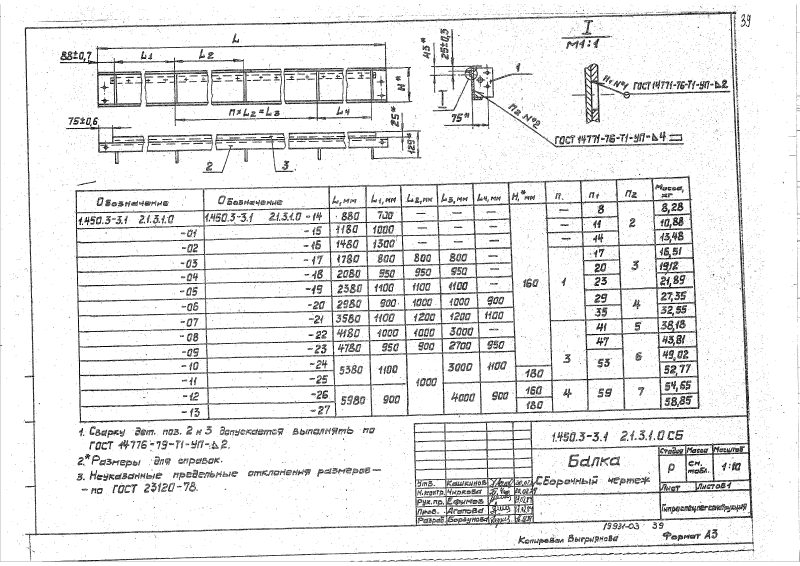 39
L
88±0,7
L1
L2
H*
n×L2=L3
L4
75±0,6
25*
125*
2
3
43*
25±0,3
1
I
75*
n2 №2
I
М1:1
n1 №1
ГОСТ 14771-76-Т1-УП-Δ2
ГОСТ 14771-76-Т1-УП-Δ4
Обозначение Обозначение L, мм L1, мм L2, мм L3, мм L4, мм H,* мм n n1 n2 Масса, кг
1.450.3-3.1 2.1.3.1.0 1.450.3-3.1 2.1.3.1.0 -14 880 700 — — — 160 — 8 2 8,28
-01 -15 1180 1000 — — — — 11 10,88
-02 -16 1480 1300 — — — — 14 13,48
-03 -17 1780 800 800 800 — 1 17 3 16,51
-04 -18 2080 950 950 950 — 20 19,12
-05 -19 2380 1100 1100 1100 — 23 21,89
-06 -20 2980 900 1000 1000 900 29 4 27,35
-07 -21 3580 1100 1200 1200 1100 35 32,55
-08 -22 4180 1000 1000 3000 — 3 41 5 38,18
-09 -23 4780 950 900 2700 950 47 6 43,81
-10 -24 5380 1100 1000 3000 1100 53 49,02
-11 -25 180 52,77
-12 -26 5980 900 4000 900 160 4 59 7 54,65
-13 -27 180 58,85
1. Сварку дет. поз. 2 и 3 допускается выполнять по
ГОСТ 14776-79-Т1-УП-Δ2.
2.* Размеры для справок.
3. Неуказанные предельные отклонения размеров —
- по ГОСТ 23120-78.
1.450.3-3.1 2.1.3.1.0 СБ
Балка
Сборочный чертеж
Стадия Масса Масштаб
Р см. табл. 1:10
Лист Листов 1
Гипроспецлегконструкция
Утв. Кашкинов
Н.контр. Чиркова
Рук.пр. Ефимов
Пров. Агапова
Разраб. Борзунова
19931-03 39
Копировал Выгрянова Формат А3